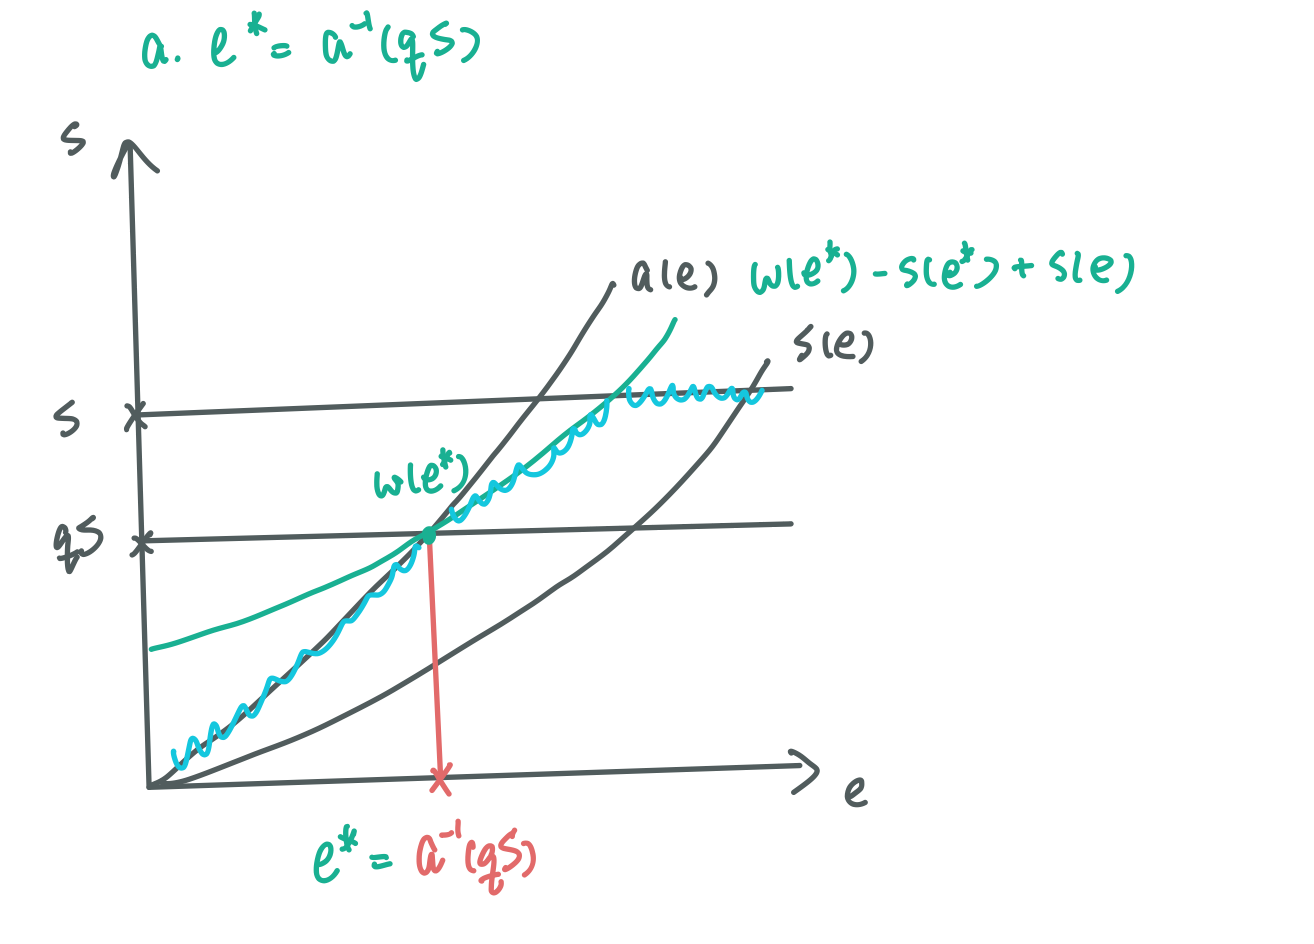 a. e* = a⁻¹(qS)
s
a(e) w(e*) - s(e*) + s(e)
s(e)
S
w(e*)
qS
e
e* = a⁻¹(qS)